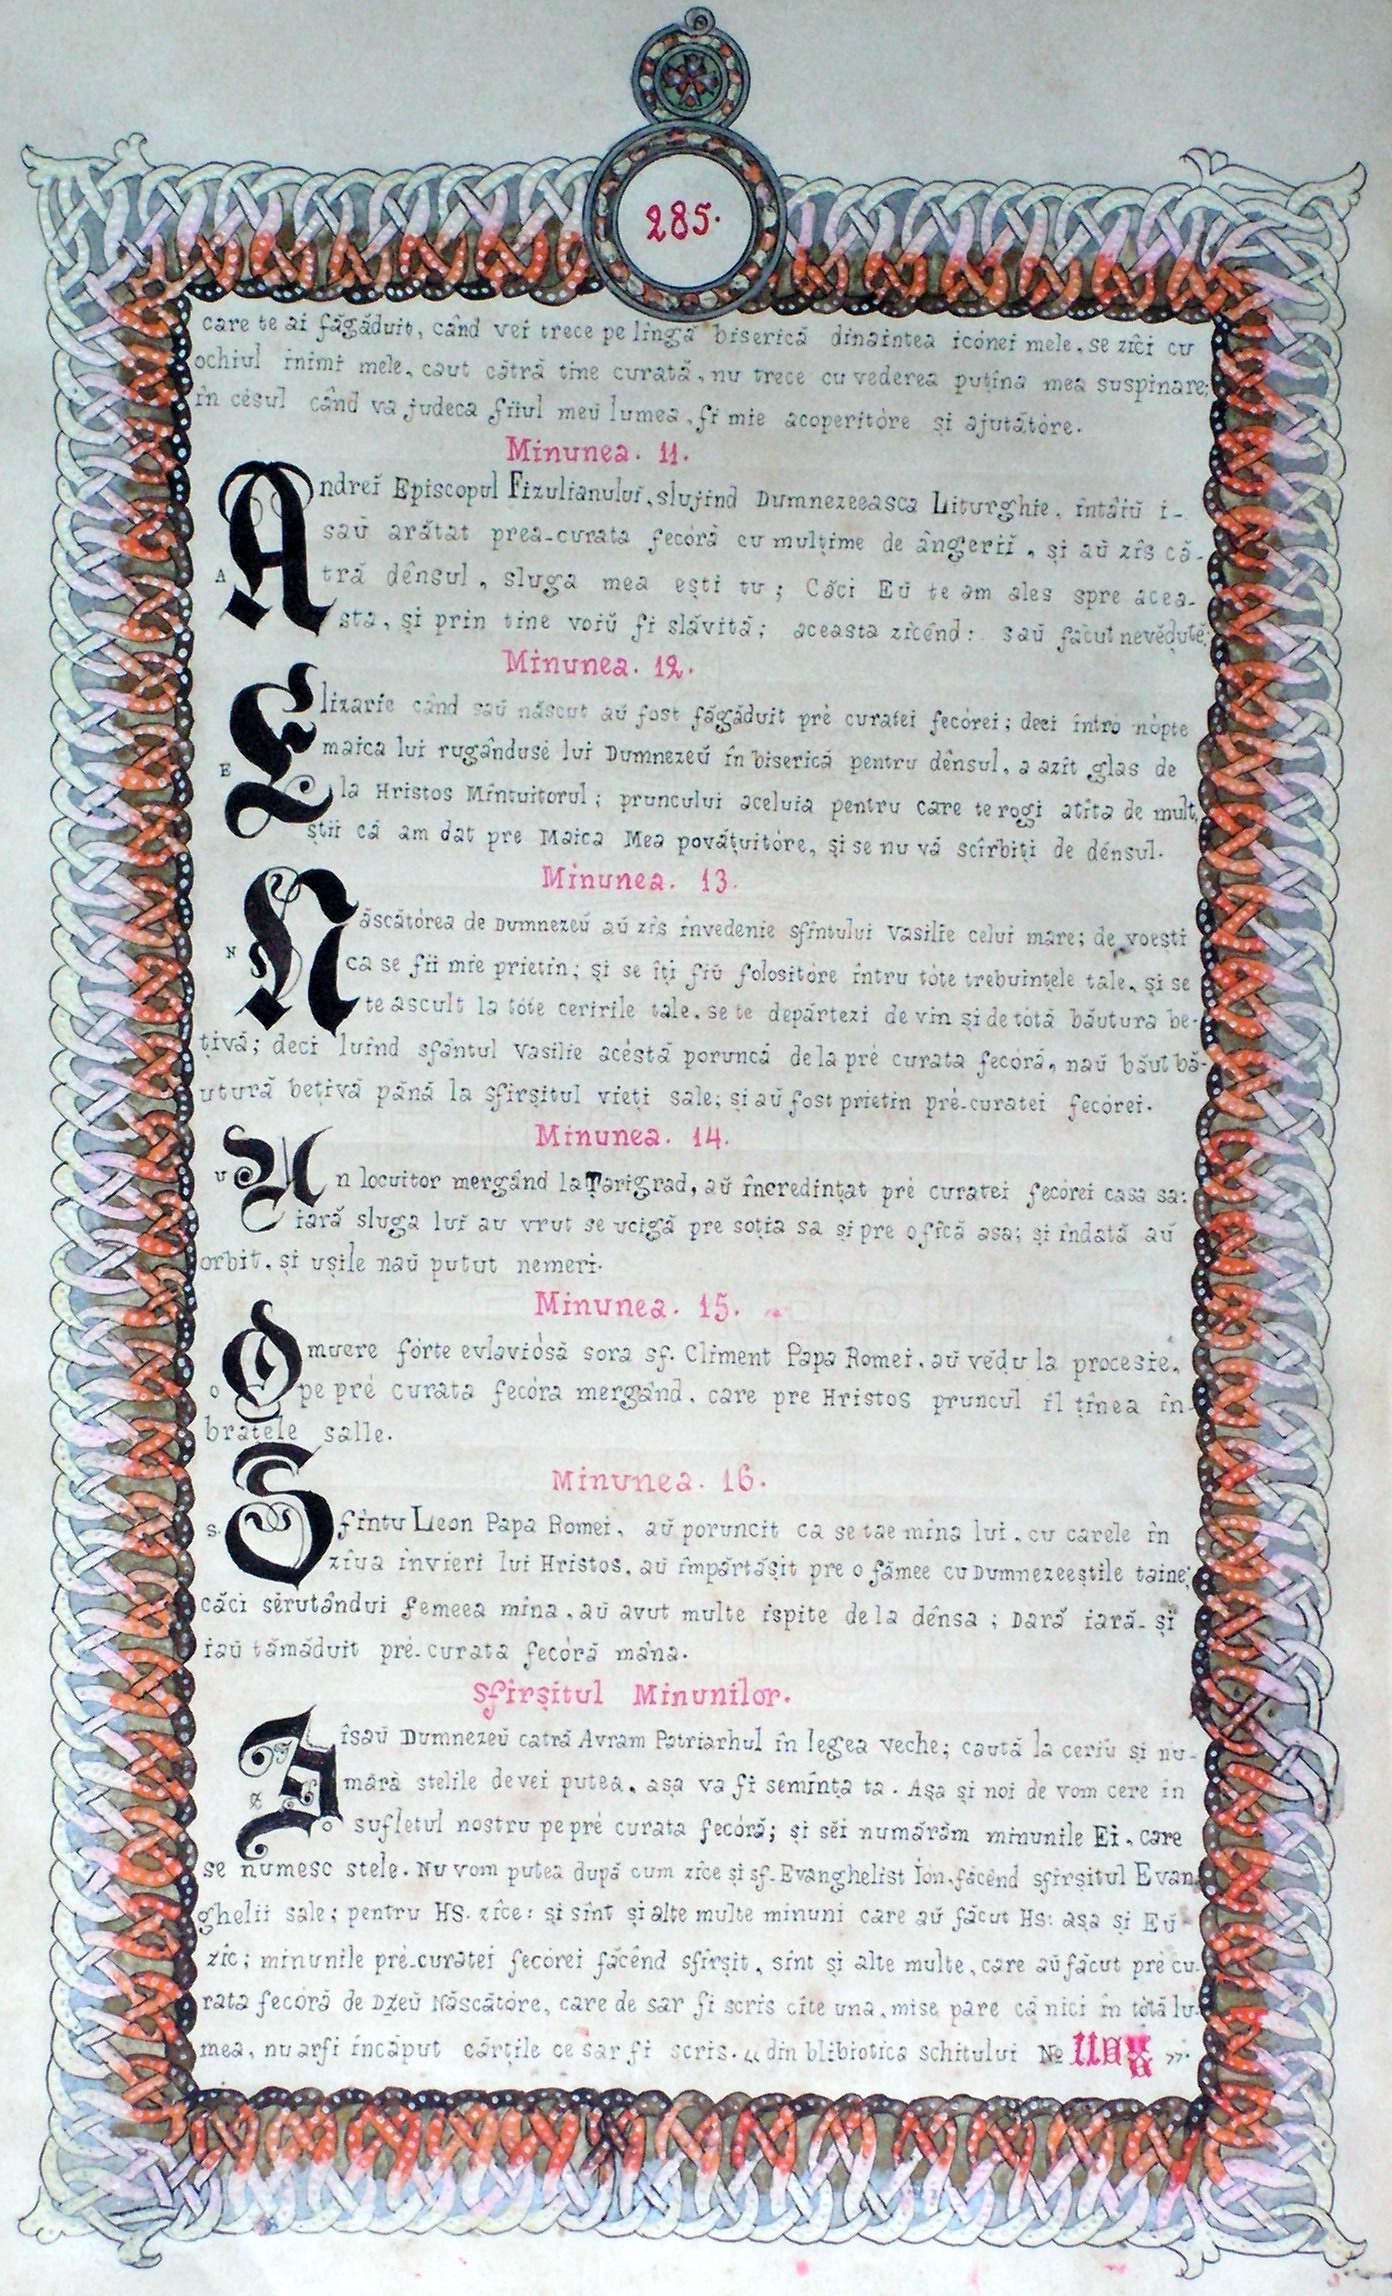 285.
care te ai făgăduit, când vei trece pe lîngă biserică dinaintea icónei mele, se zîci cu
ochiul inimi mele, caut cătră tine curată, nu trece cu vederea puțina mea suspinare;
în césul când va judeca fiiul meŭ lumea, fi mie acoperitóre și ajutătóre.
Minunea. 11.
Andreĭ Episcopul Fizulianuluĭ, slujind Dumnezeeasca Liturghie, întâiŭ i-
saŭ arătat prea-curata fecóră cu mulțime de ângeriĭ, și aŭ zîs că-
A
tră dênsul, sluga mea ești tu; Căci Eŭ te am ales spre acea-
sta, și prin tine voiŭ fi slăvită; aceasta zîcênd: saŭ făcut nevĕdută;
Minunea. 12.
Elizarie când saŭ născut aŭ fost făgăduit pré curatei fecórei; deci într'o nópte
maica lui rugânduse lui Dumnezeŭ în biserică pentru dênsul, a azît glas de
E
la Hristos Mîntuitorul; pruncului aceluia pentru care te rogi atîta de mult,
știi că am dat pre Maica Mea povățuitóre, și se nu vă scîrbiți de dênsul.
Minunea. 13.
Născătórea de Dumnezeŭ aŭ zîs învedenie sfîntului Vasilie celui mare; de voești
N
ca se fii mie prietin; și se îți fiŭ folositóre întru tóte trebuințele tale, și se
te ascult la tóte cerirîle tale, se te depărtezi de vin și de tótă băutura be-
țivă; deci luînd sfântul Vasilie acéstă poruncă de la pré curata fecóră, naŭ băut bă-
utură bețivă până la sfîrșitul vieți sale; și aŭ fost prietin pré-curatei fecórei.
Minunea. 14.
U
Un locuitor mergând la Țarigrad, aŭ încredințat pré curatei fecórei casa sa:
iară sluga luĭ au vrut se ucigă pre soția sa și pre o fîcă asa; și îndată aŭ
orbit, și ușile naŭ putut nemeri.
Minunea. 15.
O muere fórte evlaviósă sora sf. Climent Papa Romei, aŭ vĕdu la procesie,
o
pe pré curata fecóra mergând, care pre Hristos pruncul îl țînea în-
brațele salle.
Minunea. 16.
s.
Sfîntu Leon Papa Romei, aŭ poruncit ca se tae mîna lui, cu carele în
zîua învieri lui Hristos, aŭ împărtășit pre o fămee cu Dumnezeeștile taine;
căci sĕrutândui femeea mîna, aŭ avut multe ispite de la dênsa; Dară iară-și
iaŭ tămăduit pré-curata fecóră mâna.
Sfîrșitul Minunilor.
Zîsaŭ Dumnezeŭ catră Avram Patriarhul în legea veche; caută la ceriŭ și nu-
z
mără stelile de vei putea, așa va fi semînța ta. Așa și noi de vom cere în
sufletul nostru pe pré curata fecóră; și sĕi numărăm minunile Ei, care
se numesc stele. Nu vom putea după cum zîce și sf. Evanghelist Ión, făcênd sfîrșitul Evan-
ghelii sale; pentru HS. zîce: și sînt și alte multe minuni care aŭ făcut Hs: așa și Eŭ-
zîc; minunile pré-curatei fecórei făcênd sfîrșit, sînt și alte multe, care aŭ făcut pré cu-
rata fecóră de Dzeŭ Născătóre, care de sar fi scris cîte una, mise pare că nici în tótă lu-
mea, nu arfi încăput cărțile ce sar fi scris. „din blibiotica schitului №